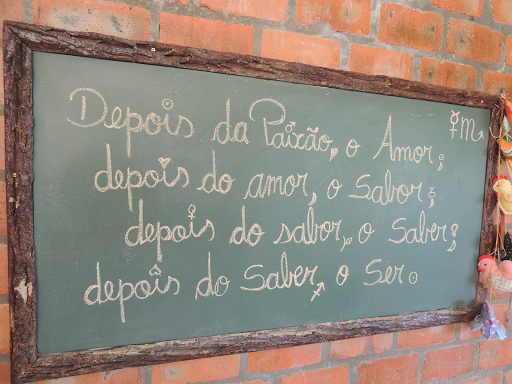 Depois da Paixão, o Amor;
depois do amor, o Sabor;
depois do sabor, o Saber;
depois do Saber, o Ser.